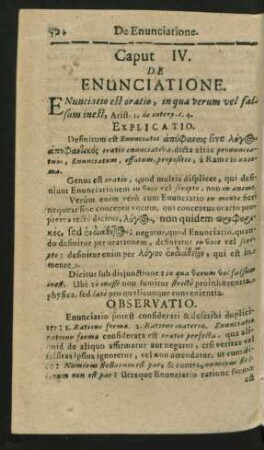 De Enunciatione.
Caput IV.
DE
ENUNCIATIONE.
ENunciatio est oratio, in qua verum vel fal-
sum inest, Arist. 1. de interp. c. 4.
EXPLICATIO.
Definitum est Enunciatio ἀπόφανσις sive λόγ@
ἀποφαντικὸς oratio enunciativa dicta aliàs pronuncia-
tum, Enunciatum, effatum, propositio, à Rameis axio-
ma.
Genus est oratio, quod multis displicet, qui defi-
niunt Enunciationem in voce vel scripto, non in mente.
Verùm enim verò cum Enunciatio in mente fieri
nequeat sine conceptu vocum, qui conceptus oratio pro-
pterea dicitur, λόγ@, non quidem
sed ἐνδιάθετ@: negatur, quòd Enunciatio, quan-
do definitur per orationem, definiatur in voce vel scri-
pto: definitur enim per λόγον ἐνδιάθετον, qui est in
mente.
Dicitur sub disjunctione in qua verum vel falsum
inest. Ubi inesse non sumitur strictè pro inhærentia
physica, sed latè pro conveniente.
OBSERVATIO.
Enunciatio potest considerari & describi duplici-
ter: 1. Ratione formæ. 2. Ratione materiæ. Enunciatio
ratione formæ considerata est oratio perfecta, qua ali-
quid de aliquo affirmatur aut negatur, etsi veritas vel
falsitas ipsa ignoretur, vel non attendatur, ut cum di-
co: Numerus stellarum est par, & contra, numerus stel-
larum non est par: Utraque Enunciatio ratione formæ
est